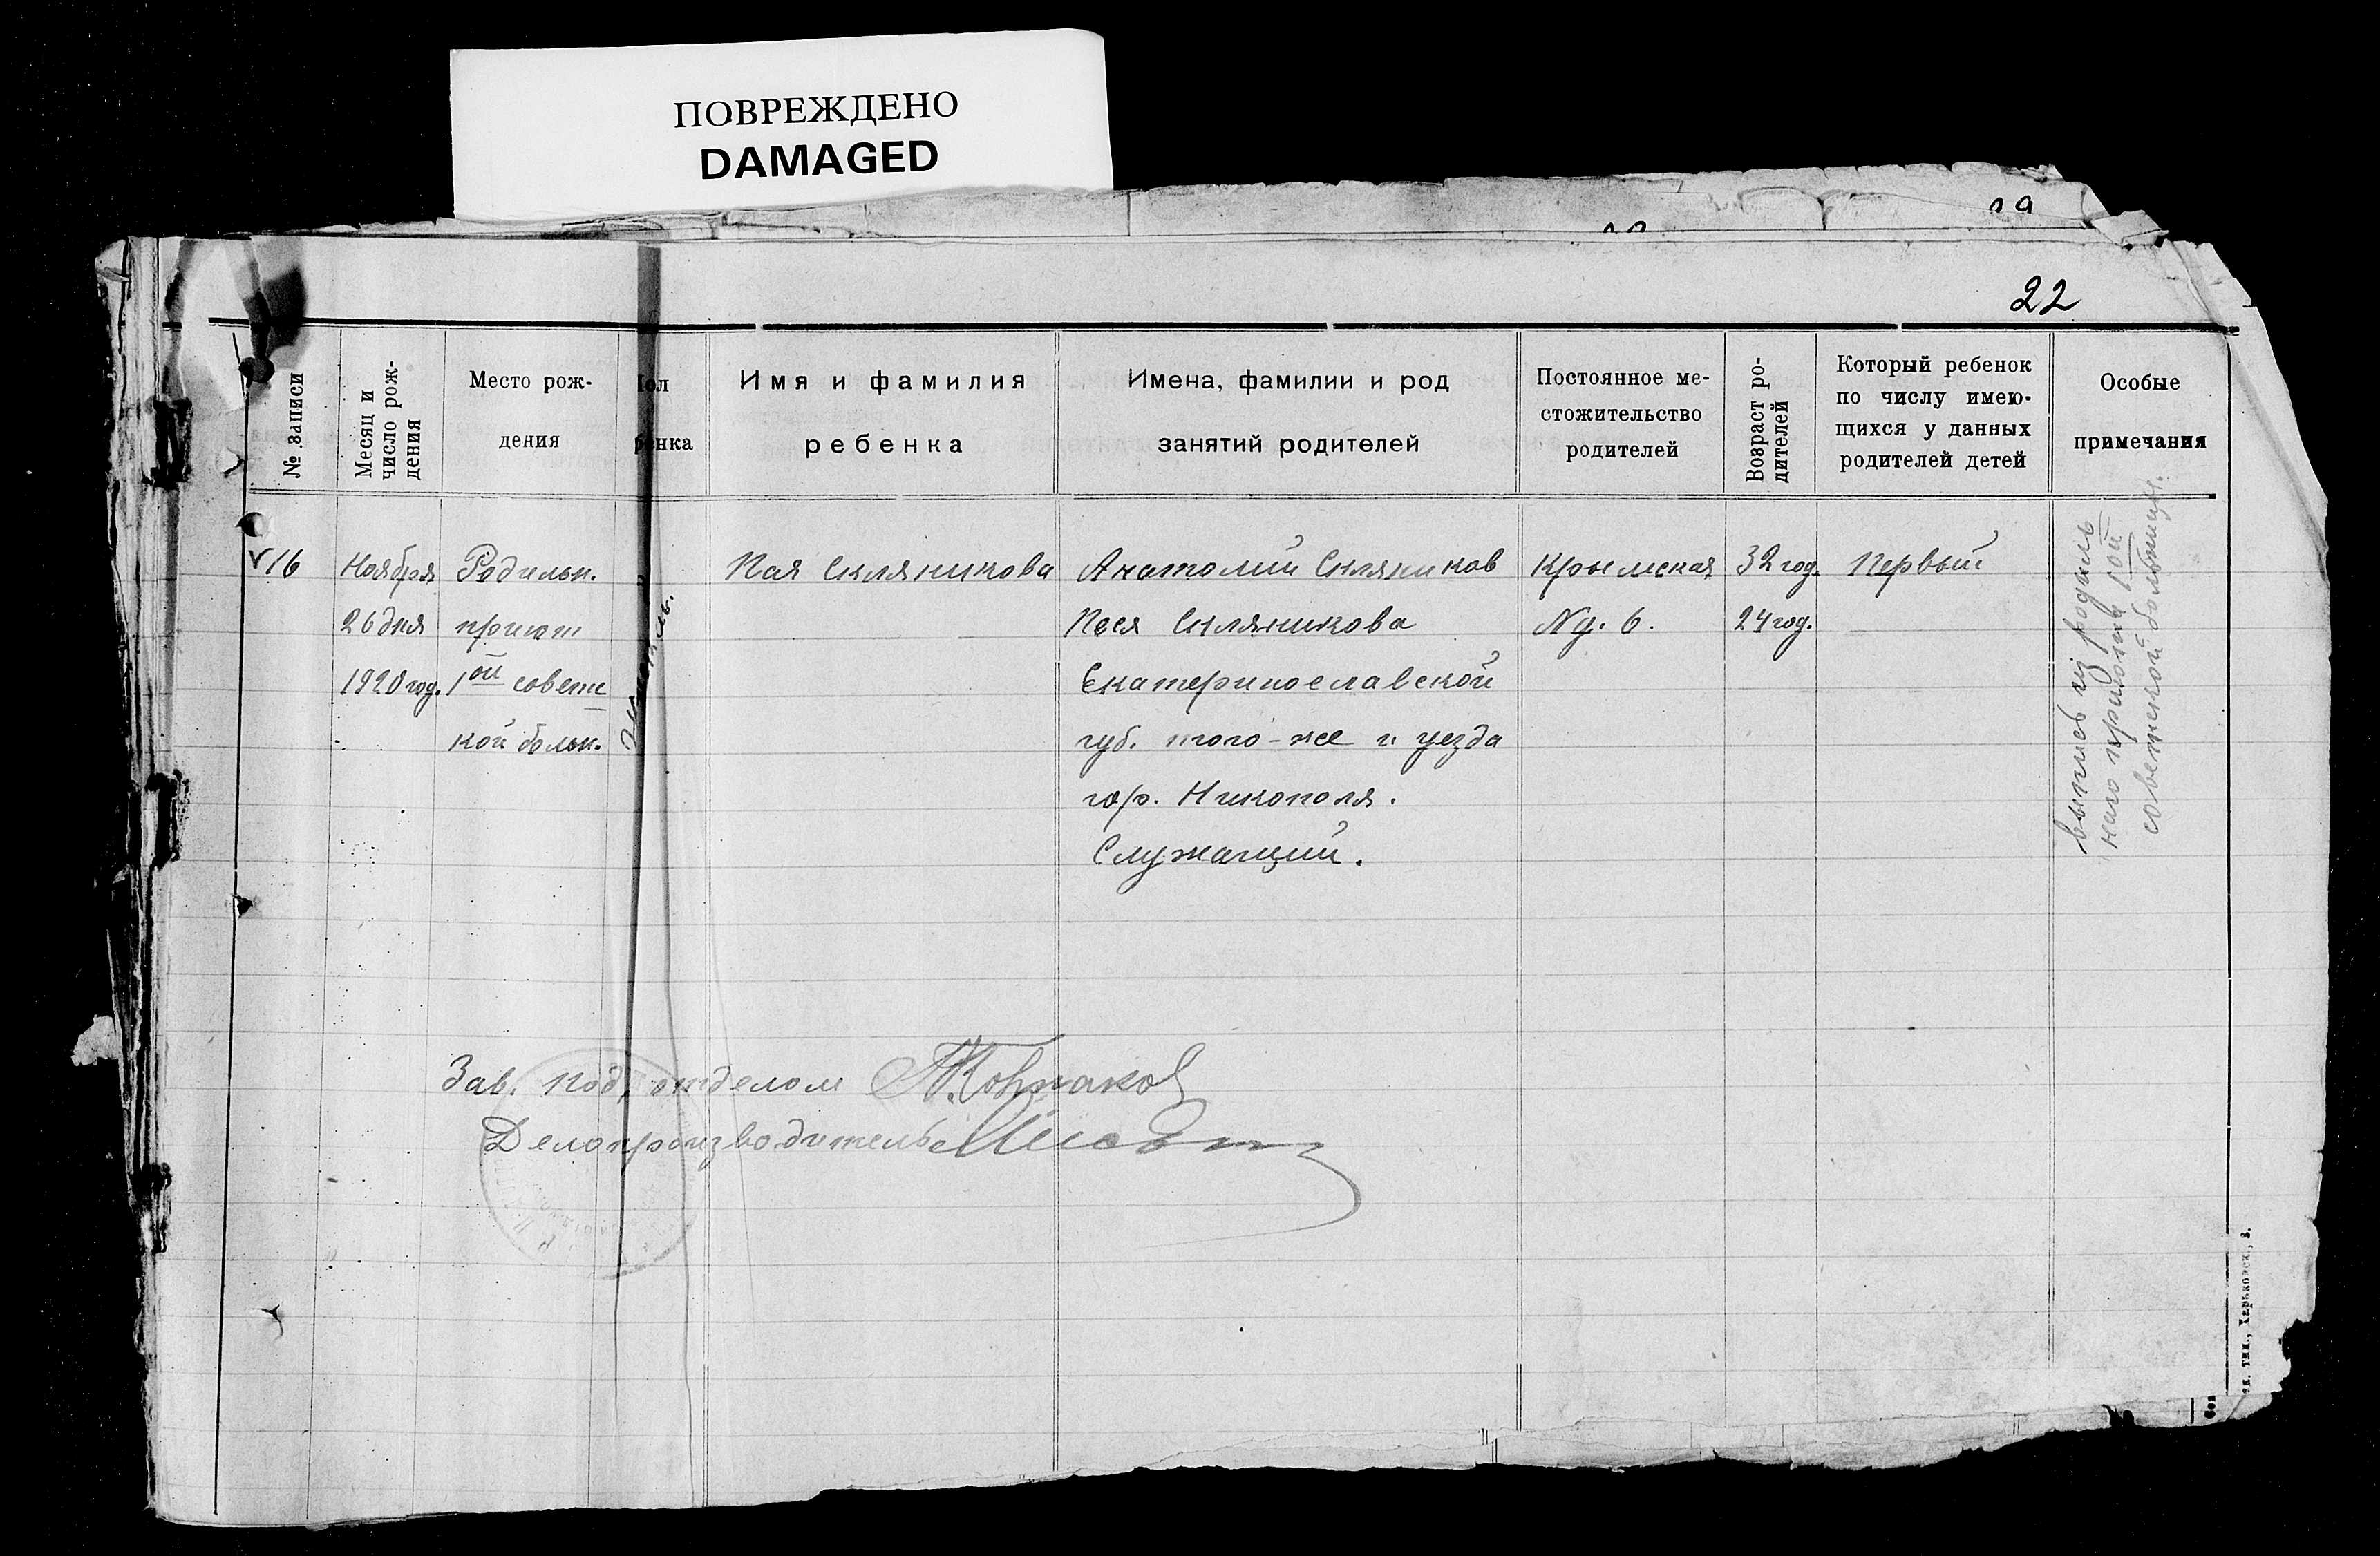 ПОВРЕЖДЕНО
DAMAGED
22
№ записи
Месяц и
число рож-
дения
Место рож-
дения
Пол
ребенка
Имя и фамилия
ребенка
Имена, фамилии и род
занятий родителей
Постоянное ме-
стожительство
родителей
Возраст ро-
дителей
Который ребенок
по числу имею-
щихся у данных
родителей детей
Особые
примечания
16
Ноября
26 дня
1920 год.
Родильн.
приют
1ой советс
кой больн.
Пая Склярникова
Анатолий Скляников
Песя Скляникова
Екатеринославской
губ. того-же и уезда
гор. Никополя.
Служащий.
Крымская
№ д. 6.
32 год.
24 год.
Первый
выпись из родиль
наго приюта 1ой
советской больниц.
Зав. под,отделом
Делопроизводитель
тип., Харьковск., 8.